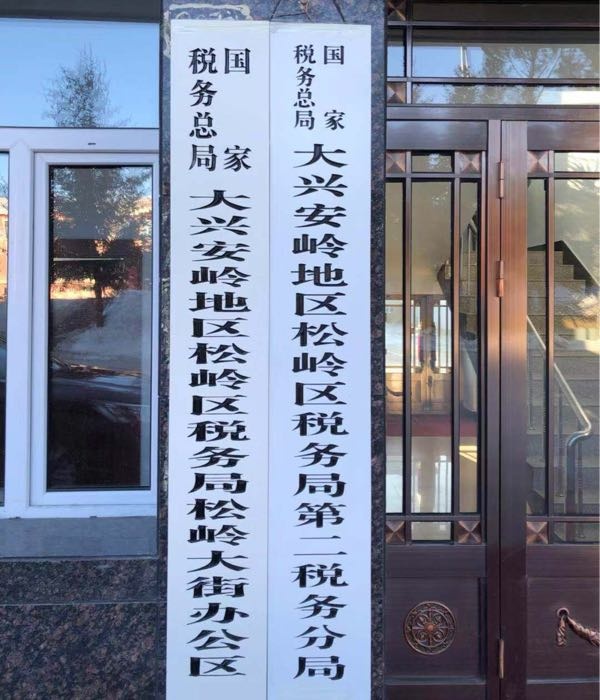 国家税务总局大兴安岭地区松岭区税务局第二税务分局
国家税务总局大兴安岭地区松岭区税务局松岭大街办公区